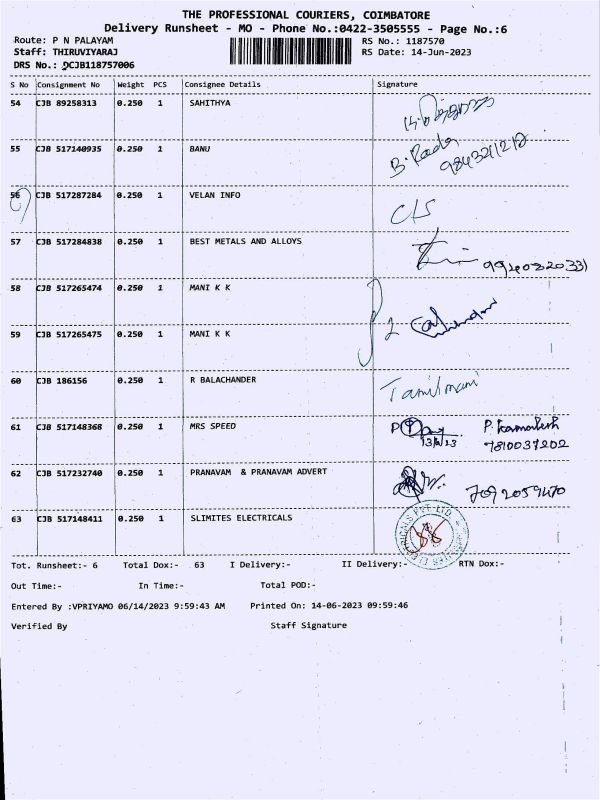 THE PROFESSIONAL COURIERS, COIMBATORE
Delivery Runsheet - MO - Phone No.:0422-3505555 - Page No.:6
Route: P N PALAYAM RS No.: 1187570
Staff: THIRUVIYARAJ RS Date: 14-Jun-2023
DRS No.: DCJB118757006
S No Consignment No Weight PCS Consignee Details Signature
54 CJB 89258313 0.250 1 SAHITHYA
55 CJB 517140935 0.250 1 BANU B. Rada 9843211212
56 CJB 517287284 0.250 1 VELAN INFO C/S
57 CJB 517284838 0.250 1 BEST METALS AND ALLOYS
58 CJB 517265474 0.250 1 MANI K K 2
59 CJB 517265475 0.250 1 MANI K K
60 CJB 186156 0.250 1 R BALACHANDER Tamilmani
61 CJB 517148368 0.250 1 MRS SPEED P. Kamalesh
7810037202
62 CJB 517232740 0.250 1 PRANAVAM & PRANAVAM ADVERT
63 CJB 517148411 0.250 1 SLIMITES ELECTRICALS
Tot. Runsheet:- 6 Total Dox:- 63 I Delivery:- II Delivery:- RTN Dox:-
Out Time:- In Time:- Total POD:-
Entered By :VPRIYAMO 06/14/2023 9:59:43 AM Printed On: 14-06-2023 09:59:46
Verified By Staff Signature